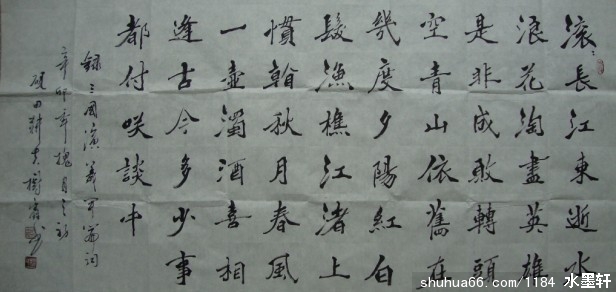 滚〻長江東逝水
浪花淘盡英雄
是非成敗轉頭
空青山依舊在
幾度夕陽紅白
髮漁樵江渚上
慣看秋月春風
一壺濁酒喜相
逢古今多少事
都付咲談中
録三國演義開篇詞
辛卯年槐月之初
硯田耕夫樹
shuhua66.com/1184 水墨轩